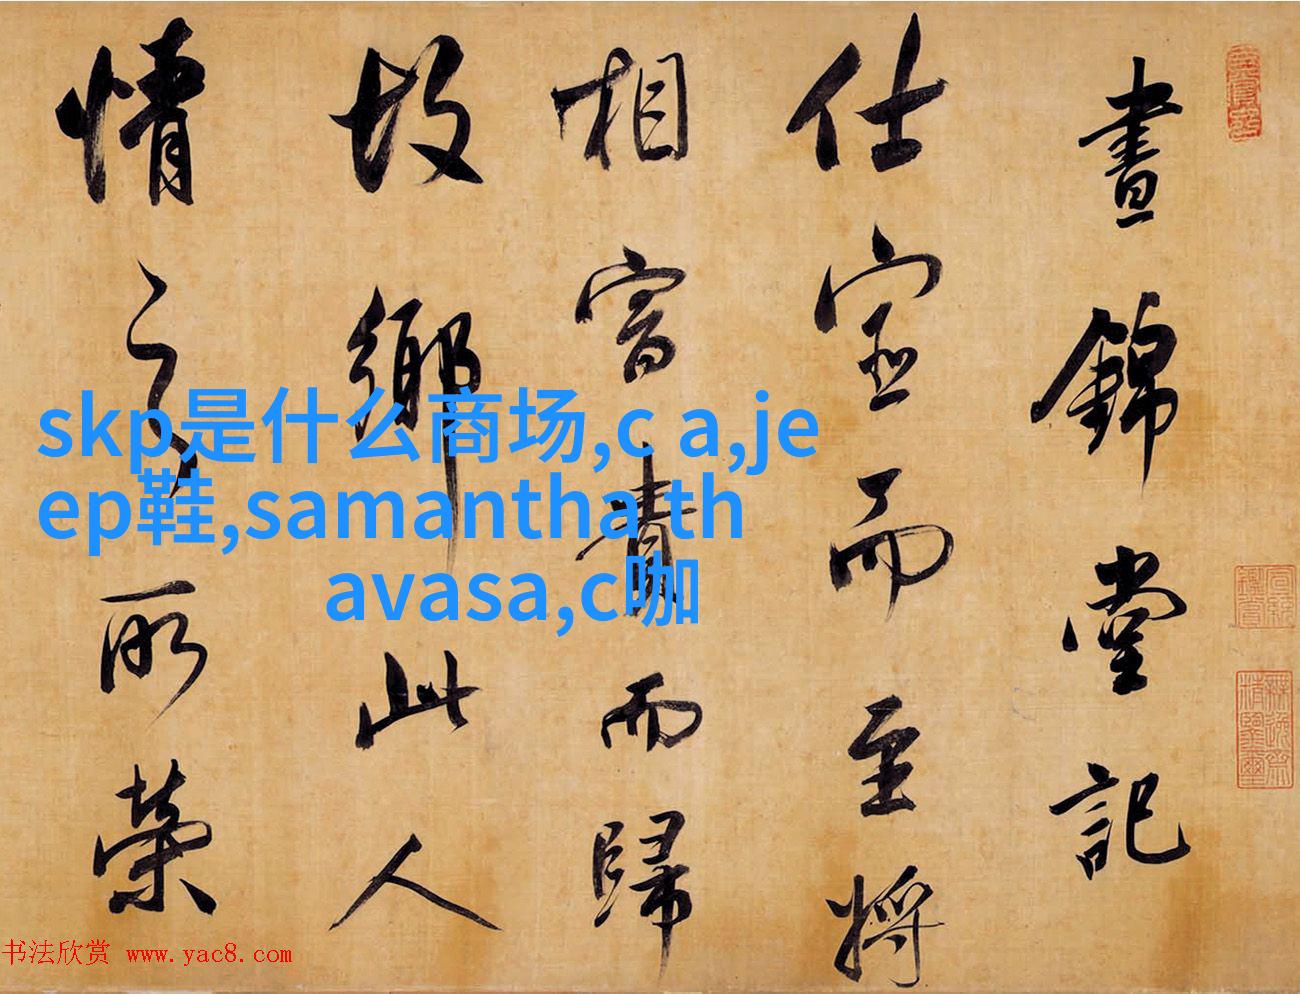 晝錦堂記
仕宦而至將
相富貴而歸
故鄉此人
情之所榮
skp是什么商场,c a,je
ep鞋,samantha th
avasa,c咖
书法欣赏 www.yac8.com